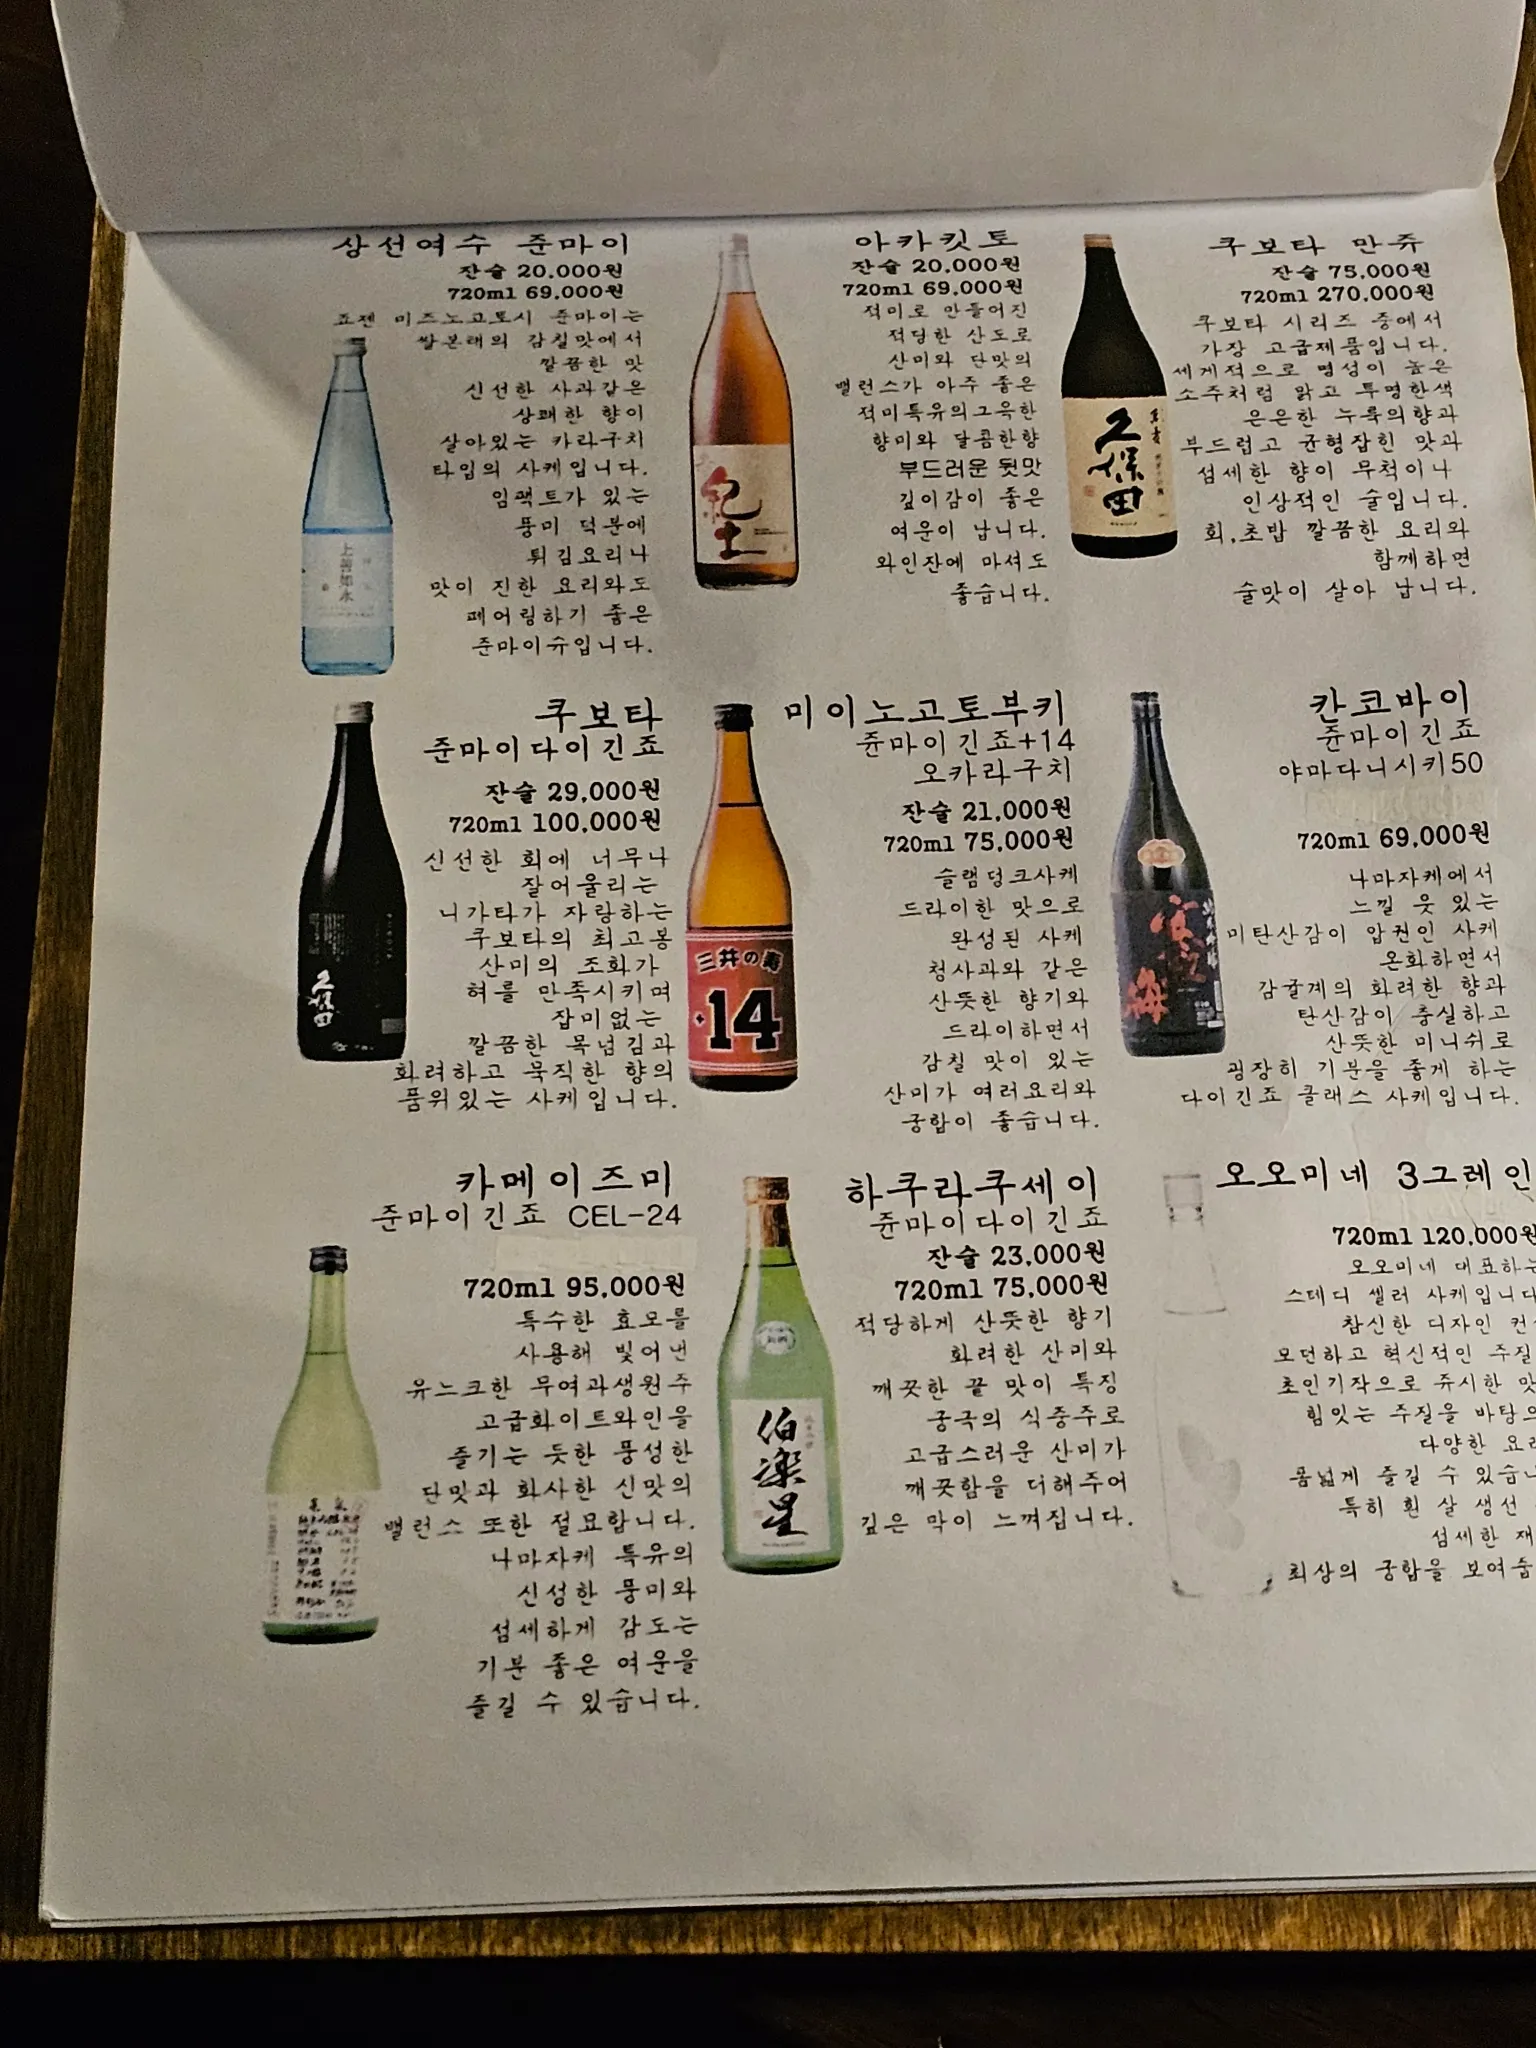 상선여수 준마이
잔술 20,000원
720ml 69,000원
죠젠 미즈노고토시 준마이는
쌀본래의 감칠맛에서
깔끔한 맛
신선한 사과같은
상쾌한 향이
살아있는 카라구치
타입의 사케입니다.
임팩트가 있는
풍미 덕분에
튀김요리나
맛이 진한 요리와도
페어링하기 좋은
준마이슈입니다.
上善如水
아카킷토
잔술 20,000원
720ml 69,000원
적미로 만들어진
적당한 산도로
산미와 단맛의
밸런스가 아주 좋은
적미특유의그윽한
향미와 달콤한향
부드러운 뒷맛
깊이감이 좋은
여운이 납니다.
와인잔에 마셔도
좋습니다.
紀土
쿠보타 만쥬
잔술 75,000원
720ml 270,000원
쿠보타 시리즈 중에서
가장 고급제품입니다.
세계적으로 명성이 높은
소주처럼 맑고 투명한색
은은한 누룩의향과
부드럽고 균형잡힌 맛과
섬세한 향이 무척이나
인상적인 술입니다.
회,초밥 깔끔한 요리와
함께하면
술맛이 살아 납니다.
久保田
쿠보타
준마이다이긴죠
잔술 29,000원
720ml 100,000원
신선한 회에 너무나
잘어울리는
니가타가 자랑하는
쿠보타의 최고봉
산미의 조화가
혀를 만족시키며
잡미없는
깔끔한 목넘김과
화려하고 묵직한 향의
품위있는 사케입니다.
久保田
미이노고토부키
쥰마이긴죠+14
오카라구치
잔술 21,000원
720ml 75,000원
슬램덩크사케
드라이한 맛으로
완성된 사케
청사과와 같은
산뜻한 향기와
드라이하면서
감칠 맛이 있는
산미가 여러요리와
궁합이 좋습니다.
三井の寿
+14
칸코바이
쥰마이긴죠
야마다니시키50
720ml 69,000원
나마자케에서
느낄 웃 있는
미탄산감이 압권인 사케
온화하면서
감귤계의 화려한 향과
탄산감이 충실하고
산뜻한 미니쉬로
굉장히 기분을 좋게 하는
다이긴죠 클래스 사케입니다.
寒紅梅
카메이즈미
준마이긴죠 CEL-24
720ml 95,000원
특수한 효모를
사용해 빚어낸
유느크한 무여과생원주
고급화이트와인을
즐기는 듯한 풍성한
단맛과 화사한 신맛의
밸런스 또한 절묘합니다.
나마자케 특유의
신성한 풍미와
섬세하게 감도는
기분 좋은 여운을
즐길 수 있습니다.
하쿠라쿠세이
쥰마이다이긴죠
잔술 23,000원
720ml 75,000원
적당하게 산뜻한 향기
화려한 산미와
깨끗한 끝 맛이 특징
궁극의 식중주로
고급스러운 산미가
깨끗함을 더해주어
깊은 막이 느껴집니다.
伯楽星
오오미네 3그레인
720ml 120,000원
오오미네 대표하는
스테디 셀러 사케입니다
참신한 디자인
모던하고 혁신적인 주질
초인기작으로 쥬시한 맛
힘있는 주질을 바탕으
다양한 요리
폭넓게 즐길 수 있습니
특히 흰 살 생선
섬세한 재
최상의 궁합을 보여줍